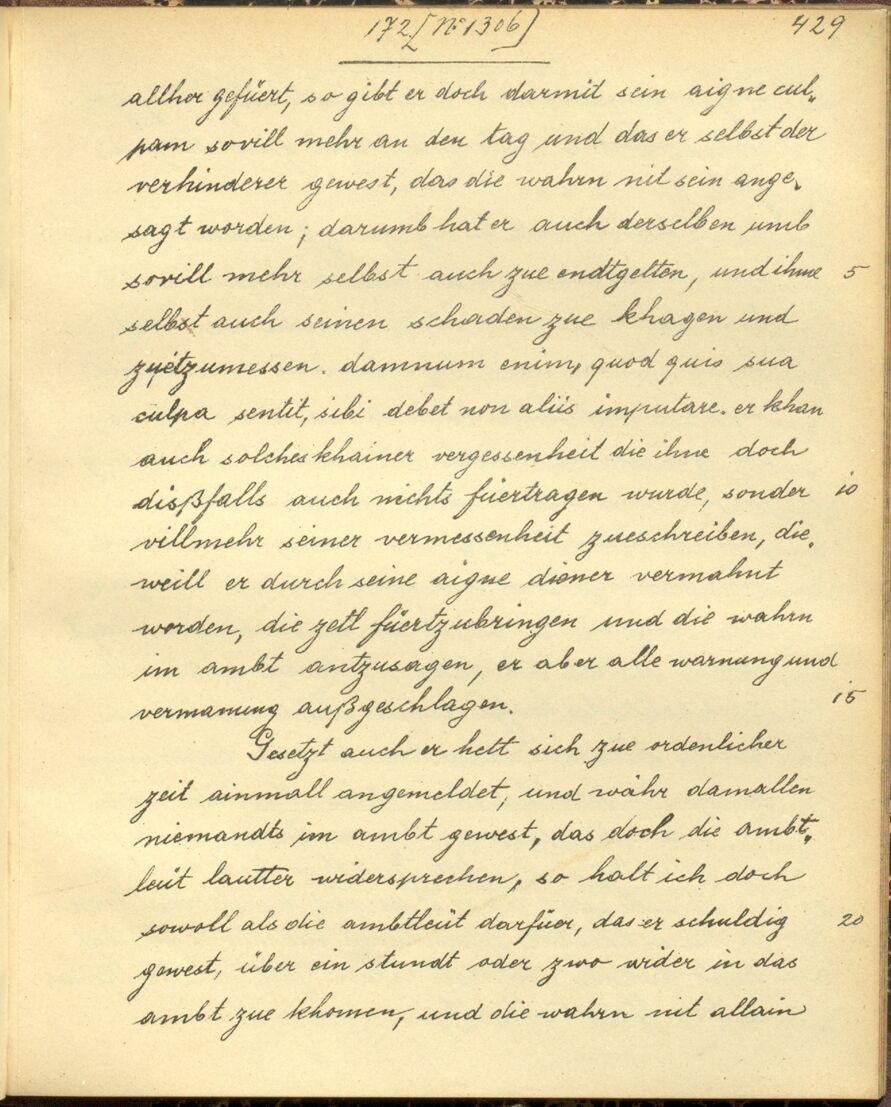 172 [No 1306]
429
allher gefüert, so gibt er doch darmit sein aigne cul„
pam sovill mehr an den tag und das er selbst der
verhinderer gewest, das die wahrn nit sein ange„
sagt worden; darumb hat er auch derselben umb
sovill mehr selbst auch zue endtgelten, und ihme 5
selbst auch seinen schaden zue khagen und
zuetzumessen. damnum enim, quod quis sua
culpa sentit, sibi debet non aliis imputare. er khan
auch solches khainer vergessenheit die ihne doch
disßfalls auch nichts füertragen wurde, sonder 10
villmehr seiner vermessenheit zueschreiben, die„
weill er durch seine aigne diener vermahnt
worden, die zetl füertzubringen und die wahrn
im ambt antzusagen, er aber alle warnung und
vermanung außgeschlagen. 15
Gesetzt auch er hett sich zue ordenlicher
zeit ainmall angemeldet, und währ damallen
niemandts im ambt gewest, das doch die ambt„
leüt lautter widersprechen, so halt ich doch
sowoll als die ambtleüt darfüer, das er schuldig 20
gewest, über ein stundt oder zwo wider in das
ambt zue khomen, und die wahrn nit allain